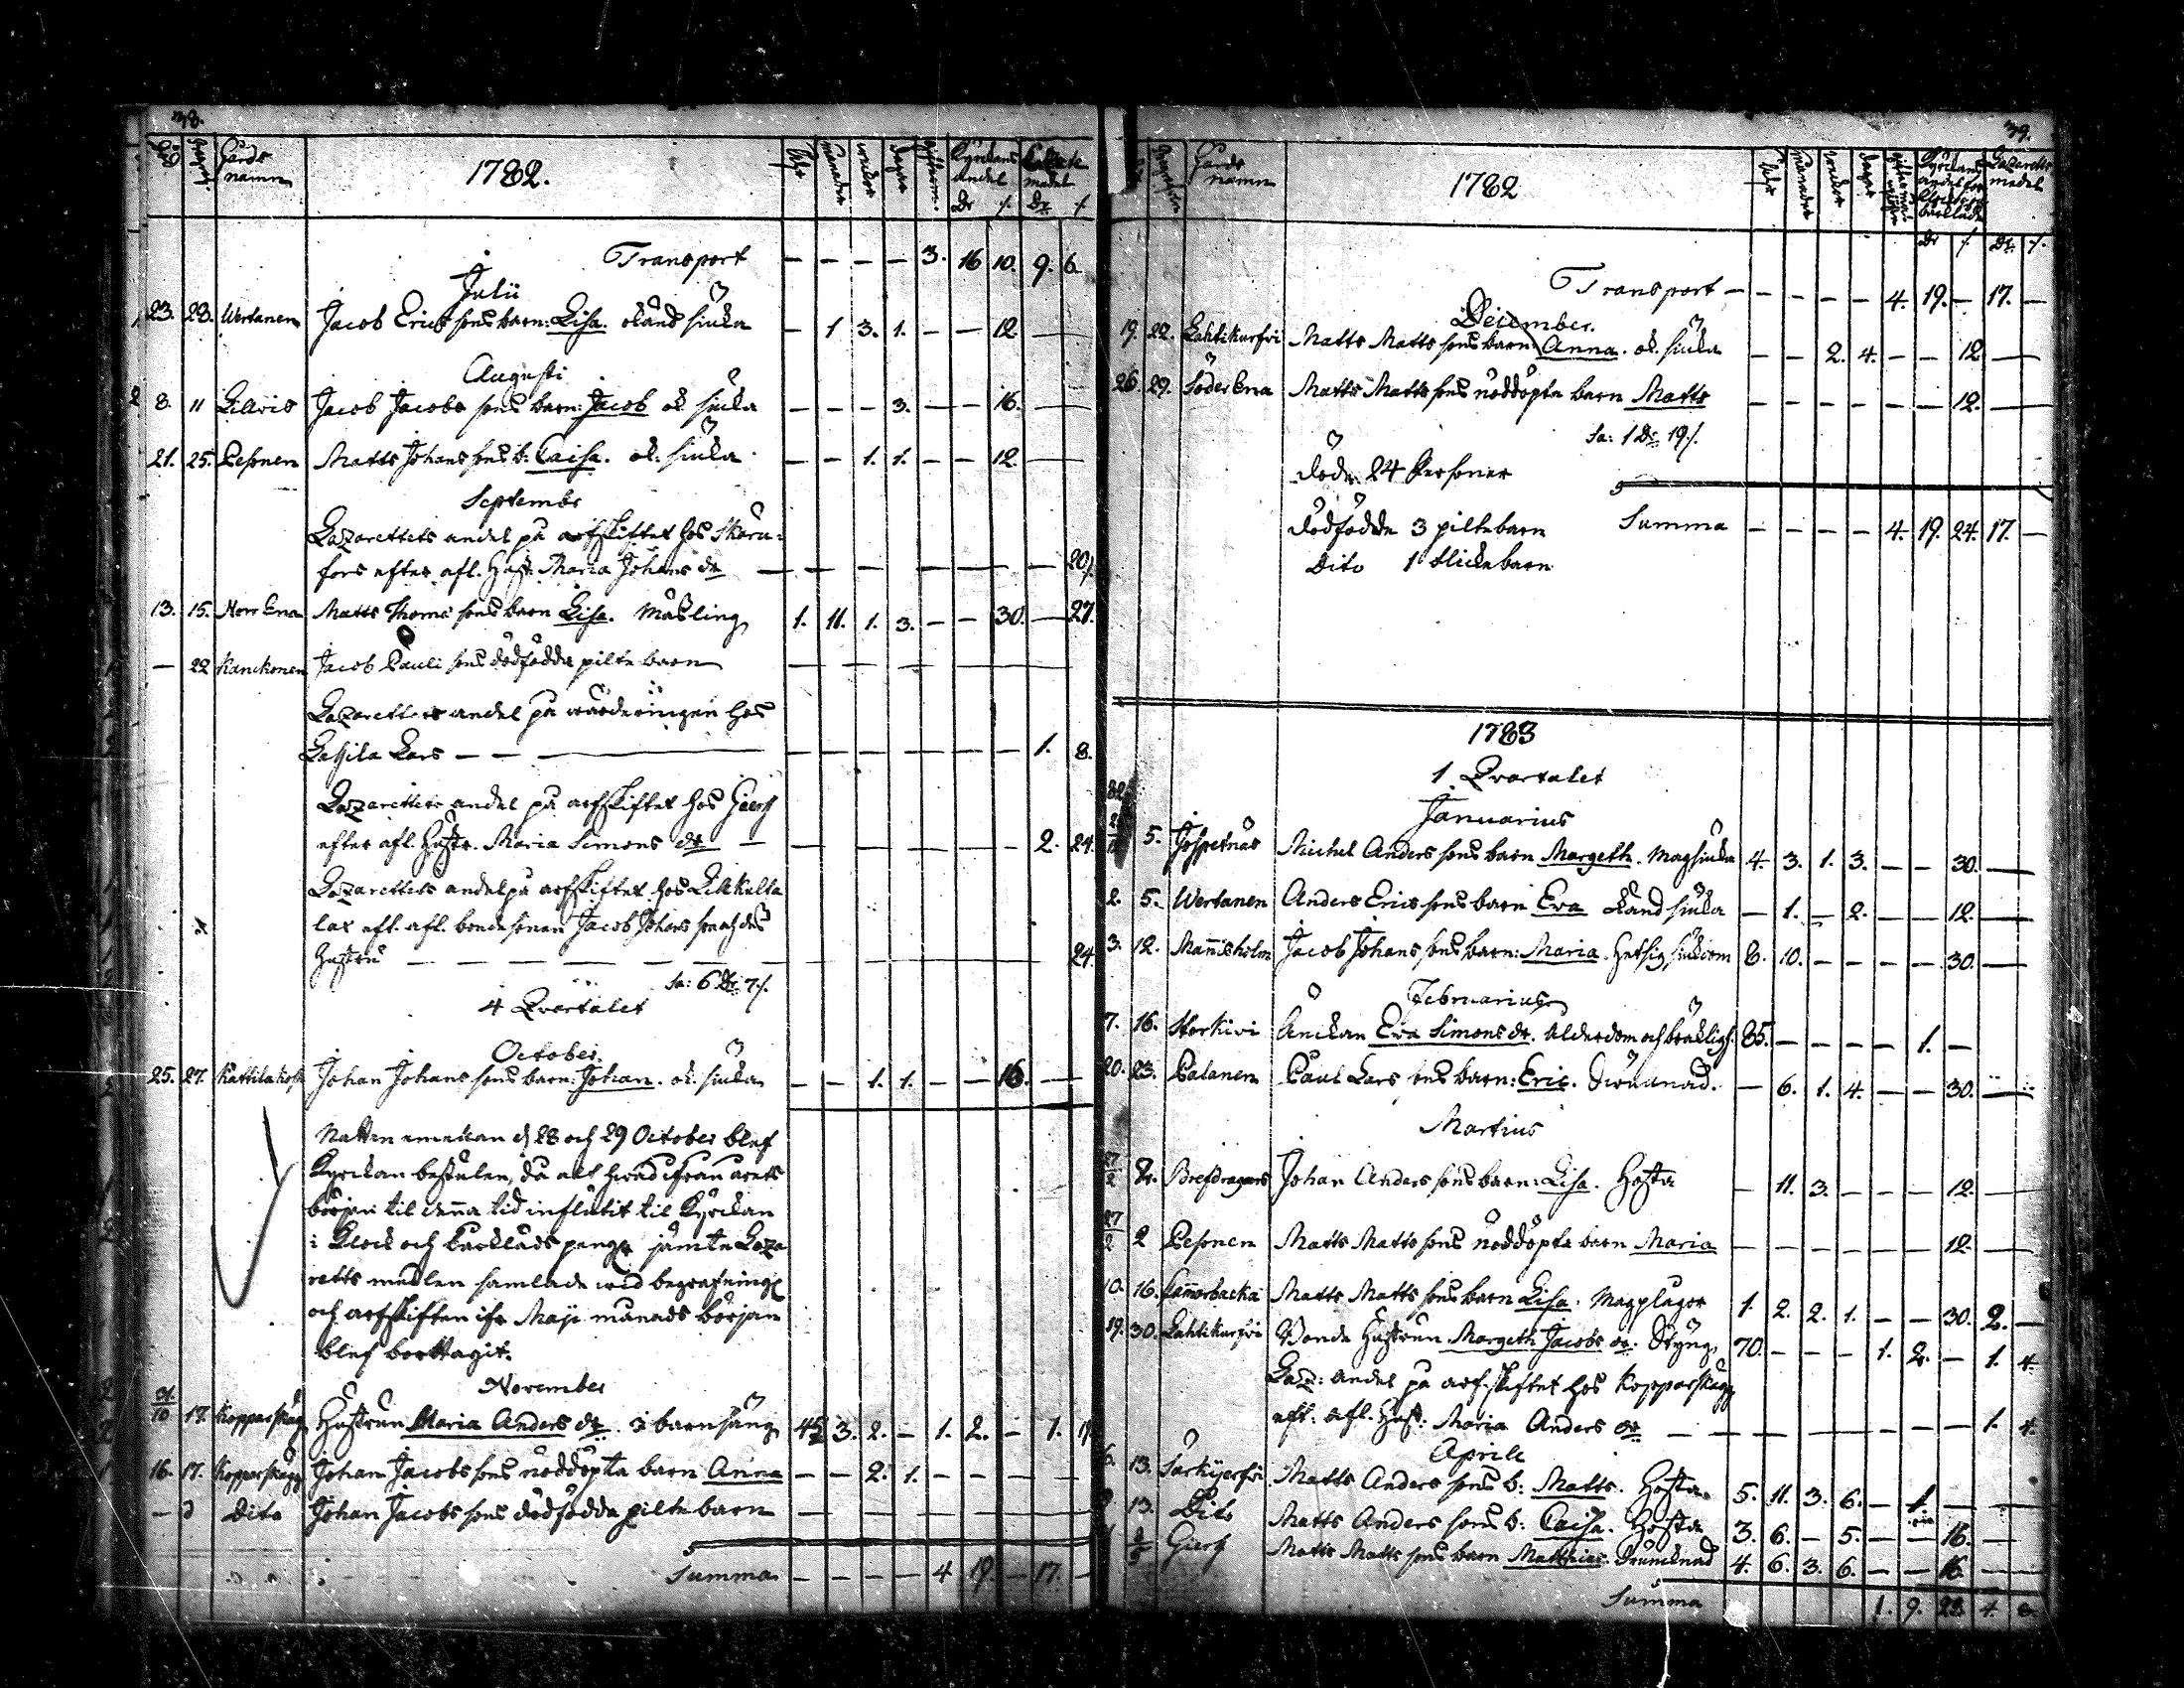 38.
Gårds namn 1782. Åhr månader wekor dagar Kyrckans andel Lazarets medel
Dr /. Dr /.
Transport — — — — 3. 16 10. 9. 6.
Julii
23. 28. Wertanen Jacob Erics sons barn: Lisa. okänd siuka — 1 3. 1. — — 12. —
Augusti
8. 11 Lillwis Jacob Jacobs sons barn: Jacob ok. siuka — — — 3. — — 16. —
21. 25. Pesonen Matts Johans sons b: Caisa. ok: siuka — — 1. 1. — — 12. —
Septembr
Lazarettets andel på arfskiftet hos Skaru=
fors efter afl. Hust. Maria Johans dr — — — — — — — 20/.
13. 15. Norr Ena Matts Thomæ sons barn Lisa. Mäsling 1. 11. 1. 3. — — 30. — 27.
— 22 Kanckonen Jacob Pauli sons dödfödda piltebarn — — — — — —
Lazarettets andel på wärderingen hos
Lassila Lars — — — — — — — — — 1. 8.
Lazarettets andel på arfskiftet hos Giers
efter afl. Hustr. Maria Simons dr — — — — — — — 2. 24.
Lazarettets andel på arfskiftet hos Lillkulla
lax eft. afl. bondesonen Jacob Johans son och des
Hustru — — — — — — — — 24.
Sa: 6 Dr 7/.
4 Qvartalet
October.
25. 27. Kattilakoski Johan Johans sons barn: Johan. ok. siuka — — 1. 1. — — 16. —
Natten emellan d 28 och 29 October blef
Kyrckan bestulen, då alt hwad ifrån årets
början til denna tid influtit til Kyrckan
i Klock och Bårklädspengr jämte Laza
retts medlen samlade wid begrafningr
och arfskiften ifr Maji månads början
blef borttagit.
November
31/10 17. Kopparskägg Hustrun Maria Anders dr. i barnsäng 45 3. 2. — 1. 2. — 1. 17
16. 17. Kopparskägg Johan Jacobs sons nöddöpta barn Anna — — 2. 1. — — — —
— d Dito Johan Jacobs sons dödfödda piltebarn — — — — — —
Summa — — — — 4 19. — 17. —
39.
Gårds namn 1782 Åhr månader wekor dagar Kyrckans andel för Klockor och bårkläde Lazaretts medel
Dr /. Dr /.
Transport — — — — — 4. 19. — 17. —
December.
19. 22. Lahtikurfvi Matts Matts sons barn Anna. ok. siuka — — 2. 4. — — 12. —
26. 29. Söder Ena Matts Matts sons nöddöpta barn Matts — — — — — — 12. —
Sa: 1 Dr 19/.
döde 24 Personer
dödfödda 3 piltebarn Summa — — — — 4. 19. 24. 17. —
Dito 1 flickebarn
1783
1 Qvartalet
Januarius
5. Jospetnäs Michel Anders sons barn Margeth. Magsiuka 4. 3. 1. 3. — — 30. —
2. 5. Wertanen Anders Erics sons barn Eva okänd siuka — 1. — 2. — — 12. —
3. 12. Mannisholm Jacob Johans sons barn: Maria. Hetsig siukdom 8. 10. — — — — 30. —
Februarius
7. 16. Storkivi Änckan Eva Simons dr. Ålderdom och bräcklig. 85. — — — — 1. —
20. 23. Palanen Paul Lars sons barn: Eric. Swullnad. — 6. 1. 4. — — 30. —
Martius
27/2 2. Brefdragars Johan Anders sons barn: Lisa. Hosta — 11. 3. — — — 12. —
27/2 2 Pesonen Matts Matts sons nöddöpta barn Maria — — — — — — 12. —
10. 16. Hammarbacka Matts Matts sons barn Lisa. Magplågor 1. 2. 2. 1. — — 30. 2. —
19. 30. Lahtikurfvi Bonde Hustrun Margeth Jacobs dr. Styng 70. — — — 1. 2. — 1. 4.
Laz: andel på arfskiftet hos Kopparskägg
eft: afl. Hust: Maria Anders dr — — — — — — — 1. 4.
Aprill
6. 13. Särkijerfvi Matts Anders sons b: Matts. Hosta 5. 11. 3. 6. — 1. — —
13. Dito Matts Anders sons b: Caisa. Hosta 3. 6. — 5. — — 16. —
Giers Matts Matts sons barn Matthias. Drunknad 4. 6. 3. 6. — — 16. — —
Summa 1. 9. 28. 4. 8.